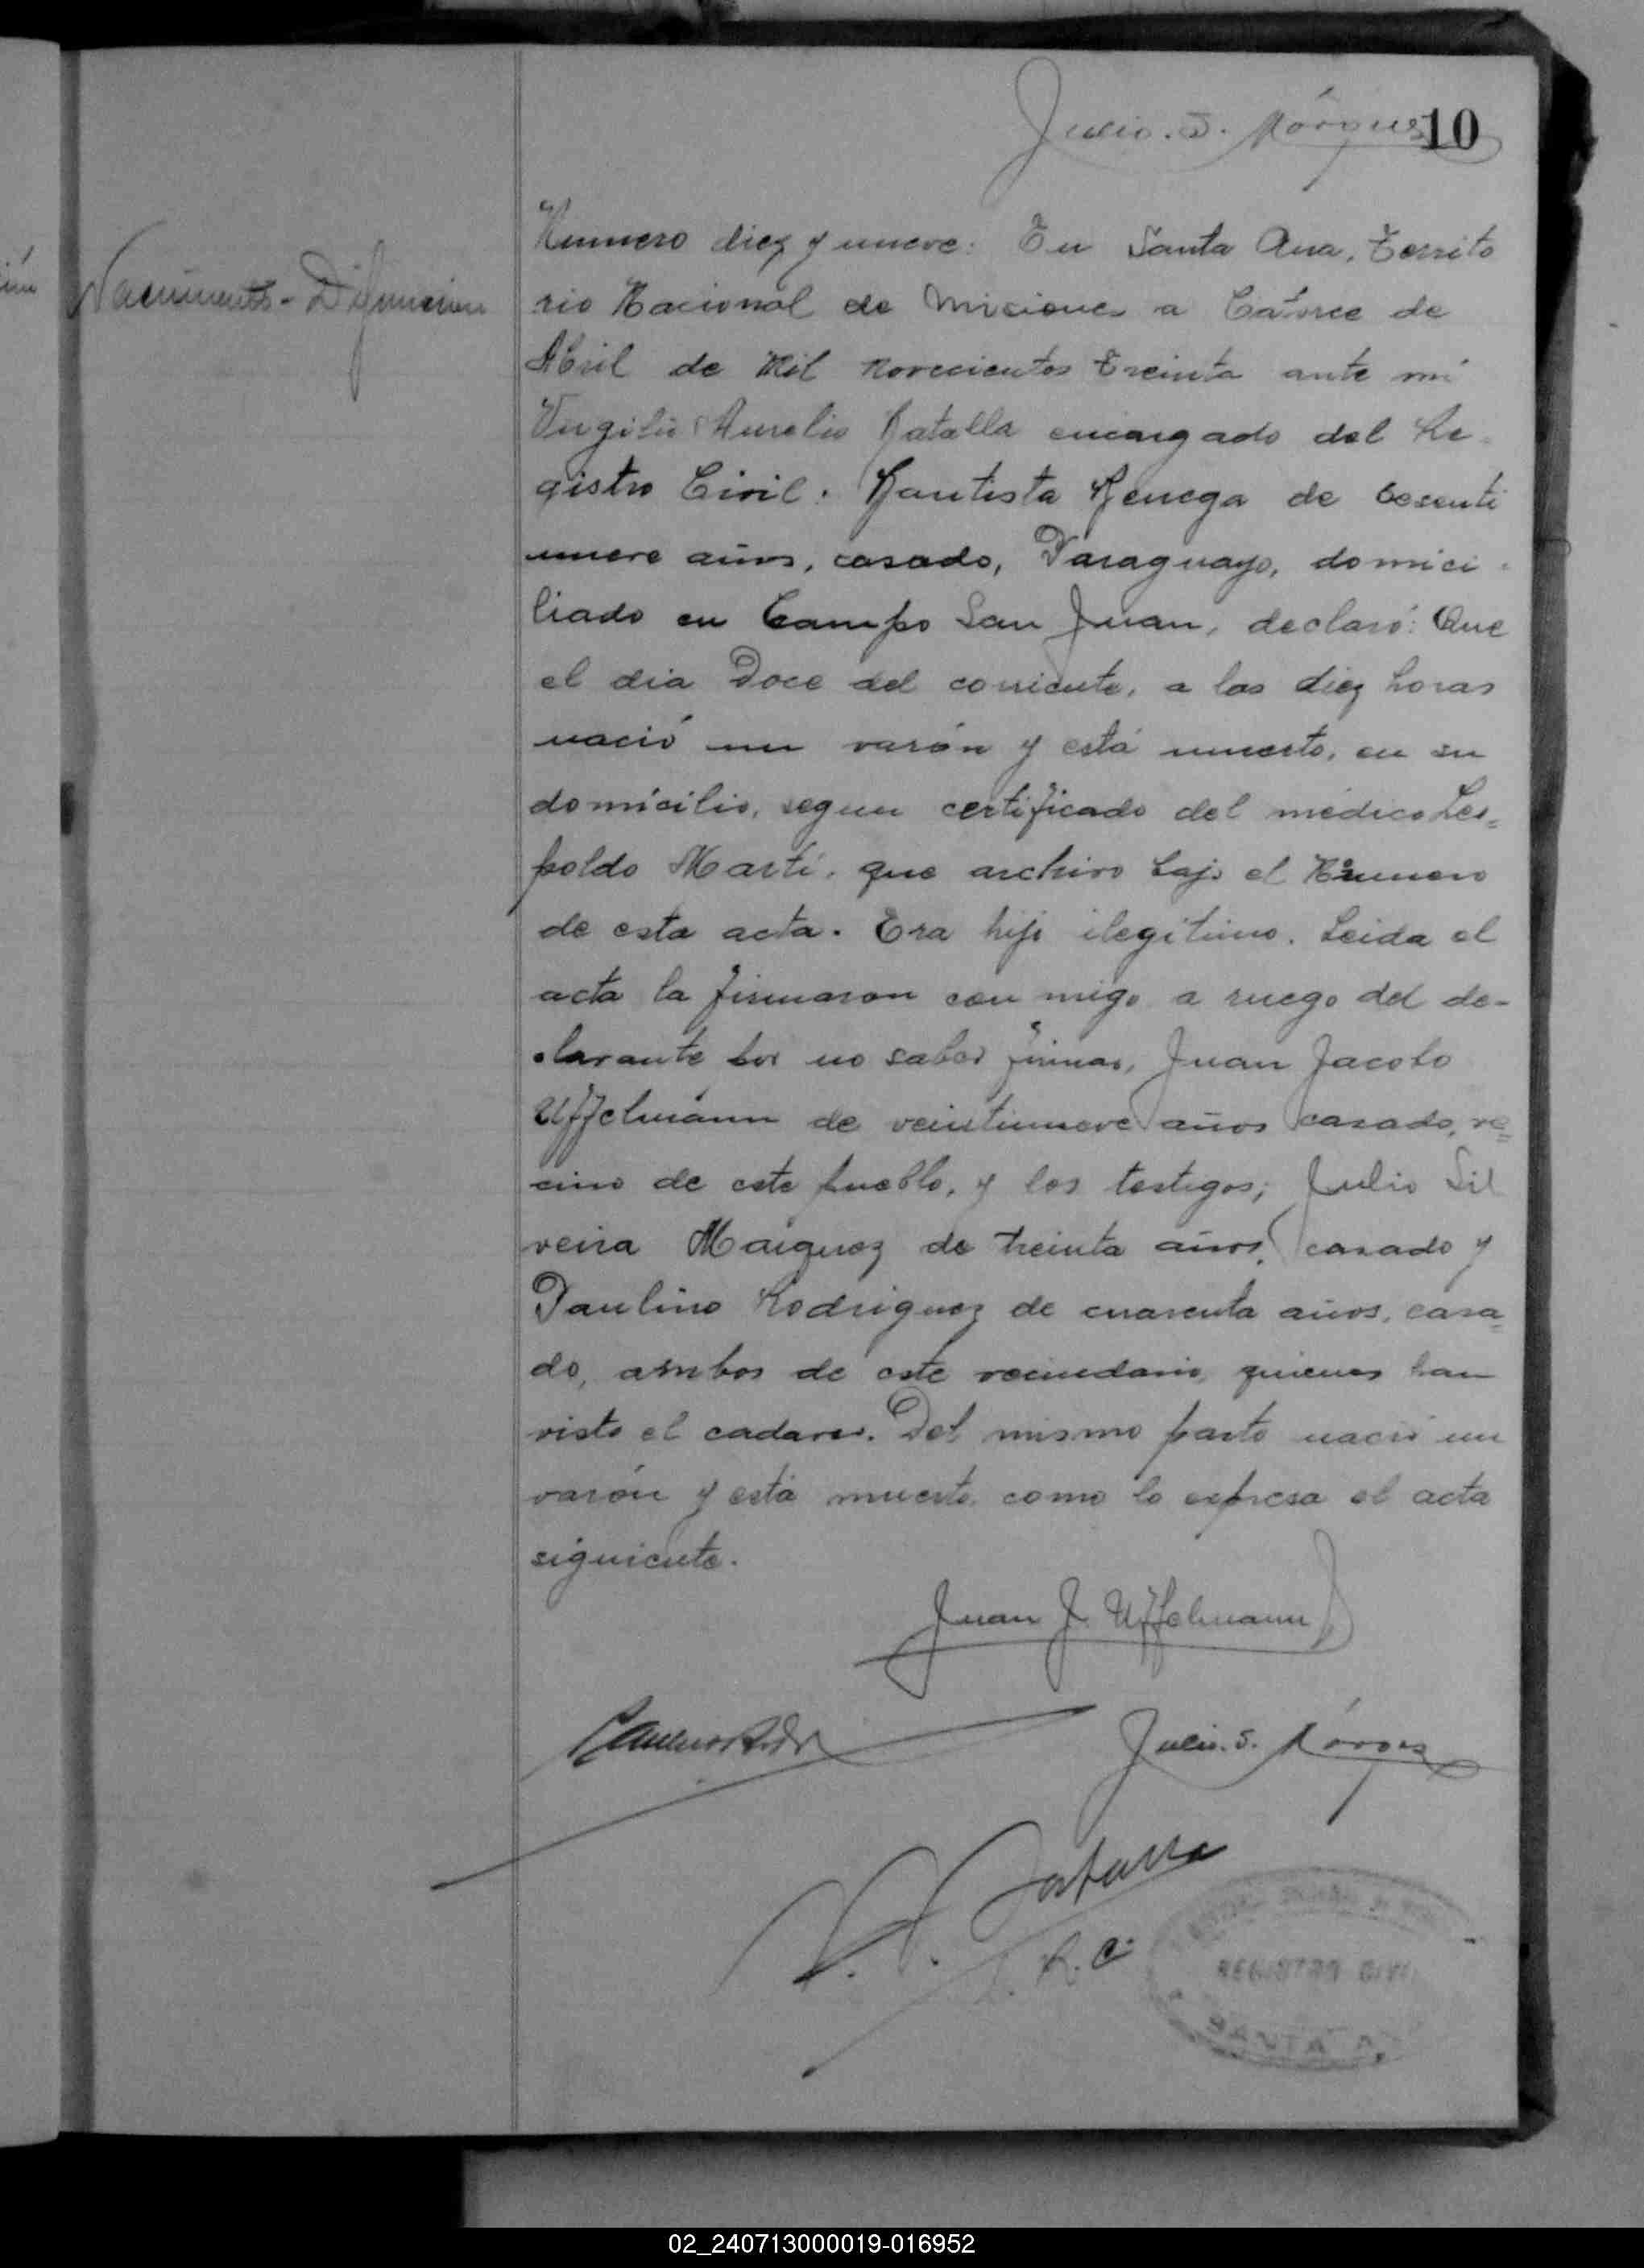 Julio. S. Márquez 10
Nacimiento - Difuncion
Numero diez y nueve: En Santa Ana, Territo
rio Nacional de Misiones a Catorce de
Abril de Mil Novecientos treinta ante mi
Virgilio Aurelio Batalla encargado del Re-
gistro Civil: Bautista Benega de sesenti
nueve años, casado, Paraguayo, domici-
liado en Campo San Juan, declaró: Que
el dia Doce del corriente, a las diez horas
nació un varón y está muerto, en su
domicilio, segun certificado del médico Leo=
poldo Martí, que archivo bajo el Número
de esta acta. Era hijo ilegitimo. Leida el
acta la firmaron con migo a ruego del de-
clarante por no saber firmar, Juan Jacobo
Uffelmann de veintinueve años casado, ve=
cino de este pueblo, y los testigos; Julio Sil
veira Marquez de treinta años, casado y
Paulino Rodriguez de cuarenta años, casa=
do, ambos de este vecindario, quienes han
visto el cadaver. Del mismo parto nació un
varón y está muerto como lo expresa el acta
siguiente.
Juan J. Uffelmann
Julio. S. Márquez
V. A. Batalla
R. C.
REGISTRO CIVIL
SANTA A
02_240713000019-016952